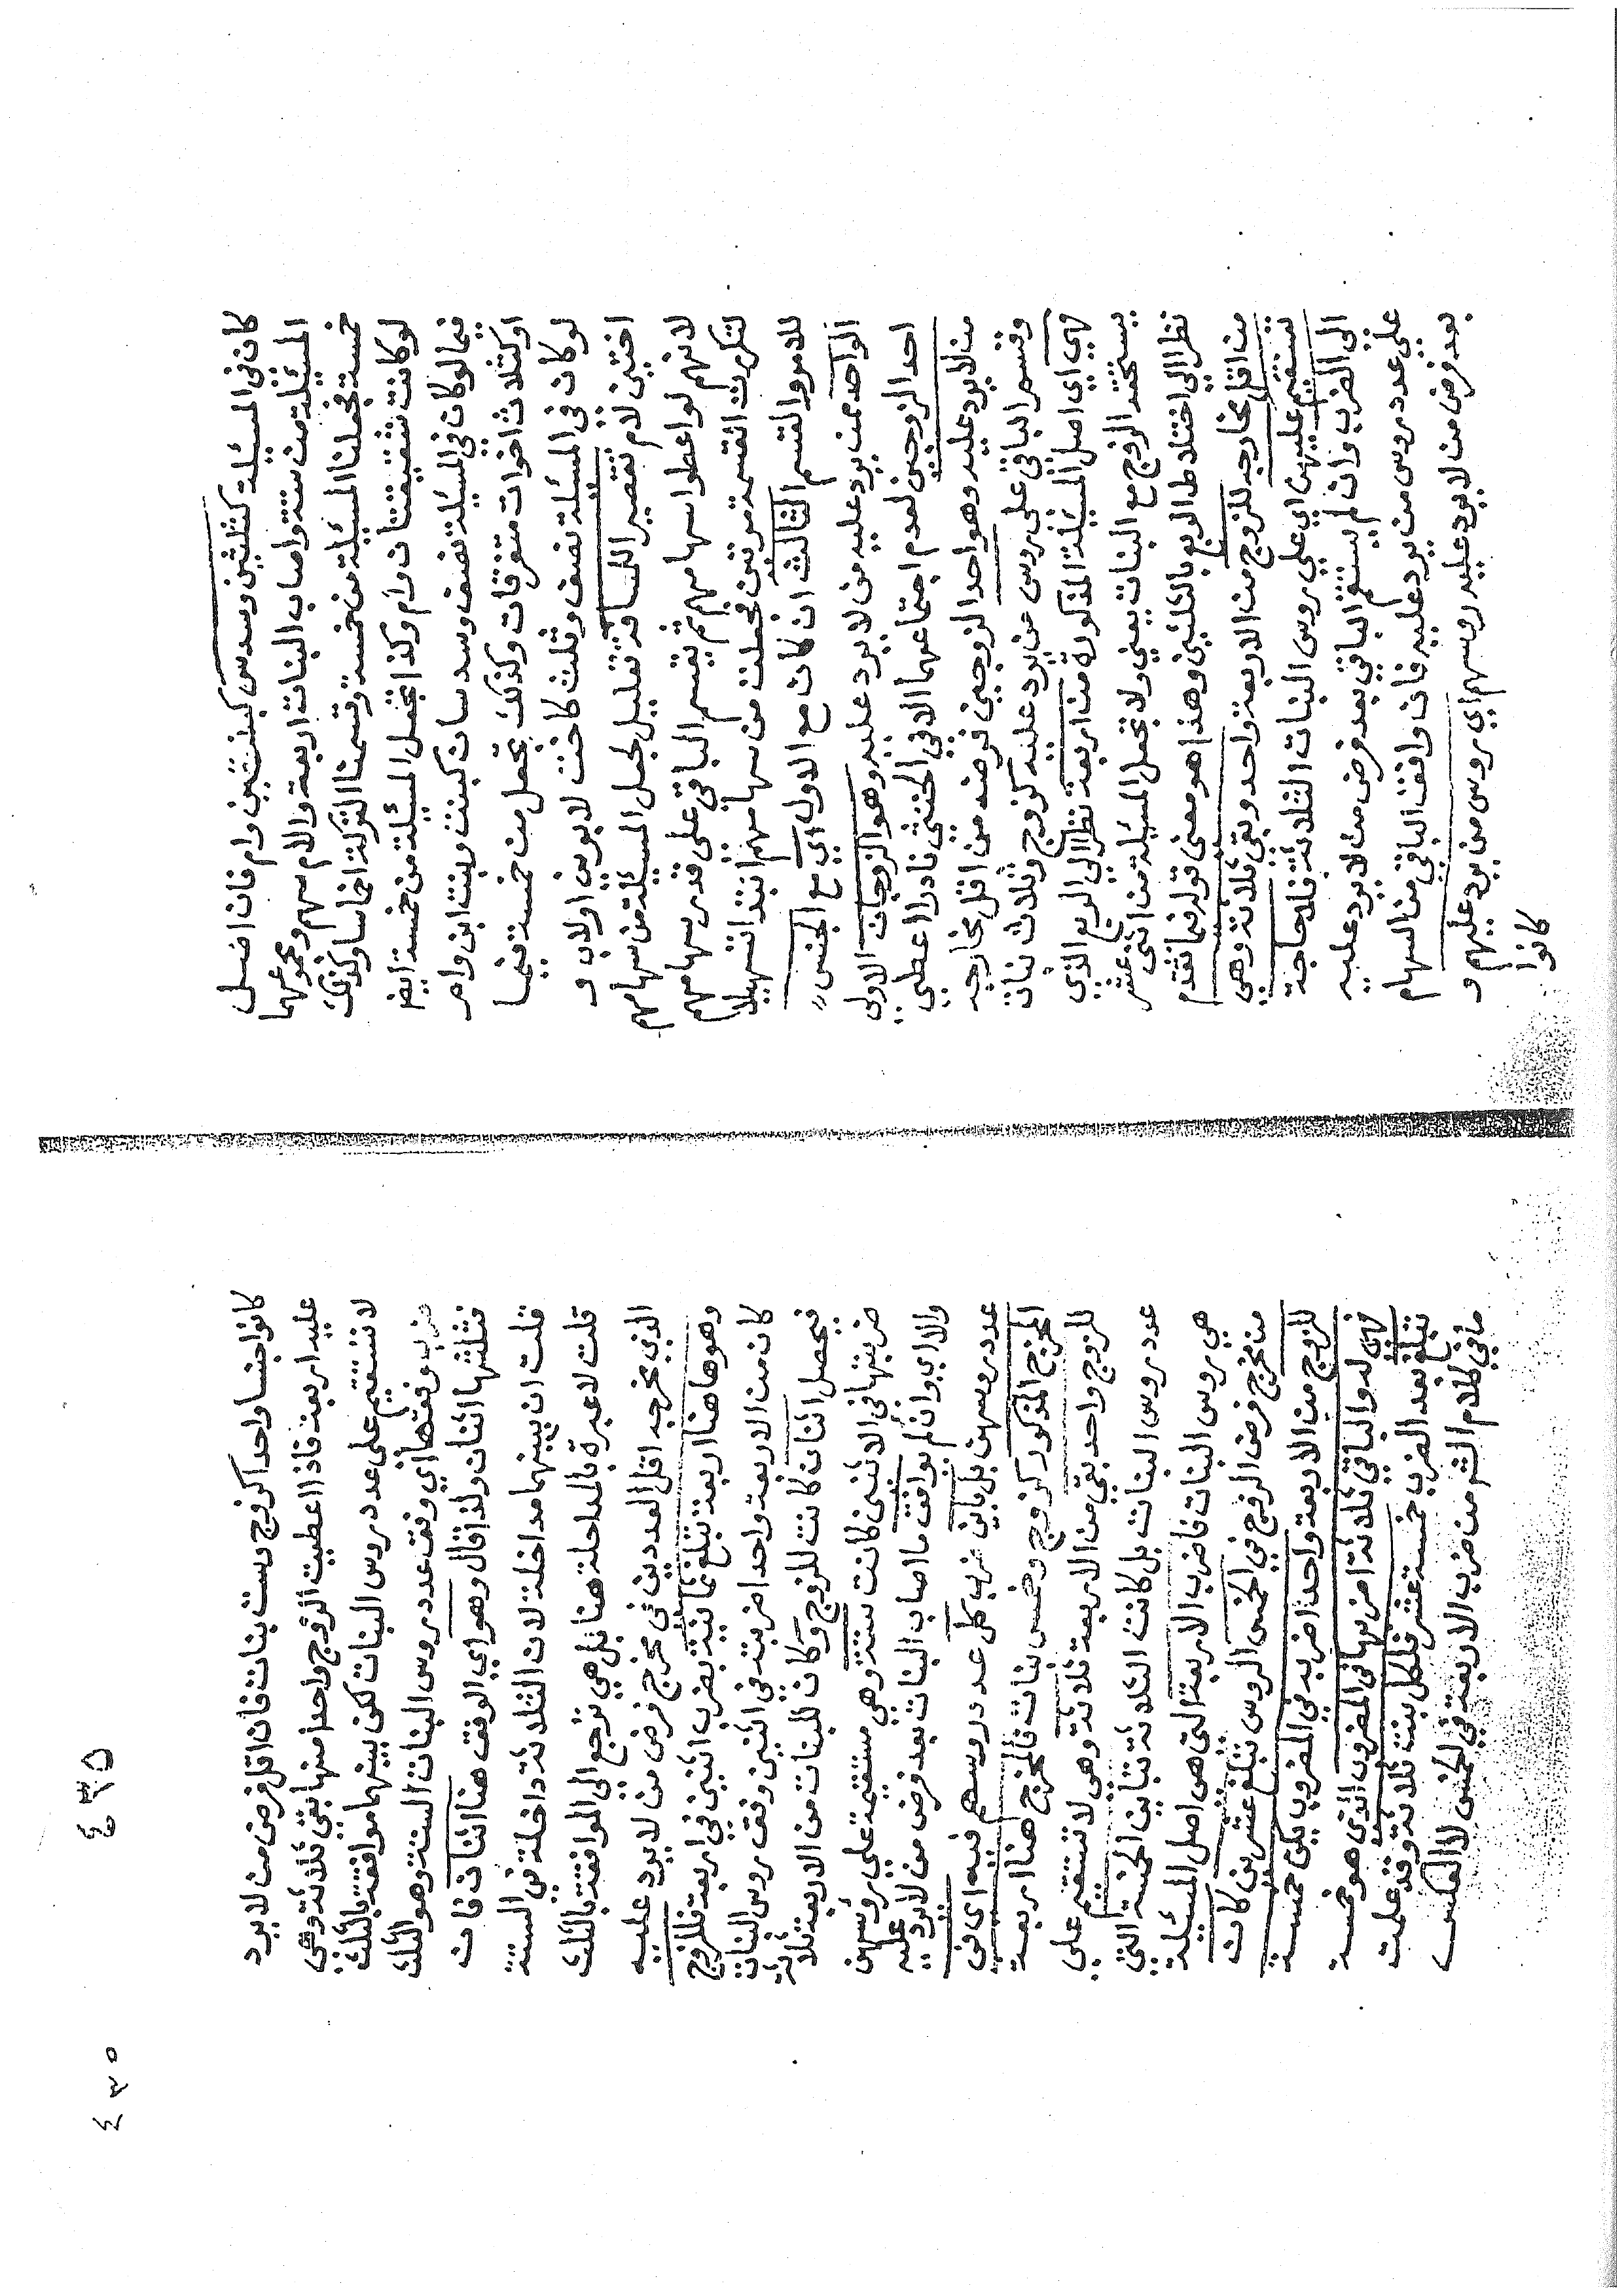 كان في المسئلة كثلثين وسدس كبنتين وام فان اصل
المسئلة من ستة واصاب البنات اربعة والام سهم ومجموعهما
خمسة فجعلنا المسئلة من خمسة وقسمنا التركة اخماسا وكذلك
لو كانت شقيقتان وام وكذا تجعل المسئلة من خمسة ايضا
فيما لو كان في المسئلة نصف وسدسان كبنت وبنت ابن وام
او كثلاث اخوات متفرقات وكذلك تجعل من خمسة فيما
لو كان في المسئلة نصف وثلث كاخت لابوين او لاب و
اختين لام تقصير اللمسافة تعليل لجعل المسئلة من سهامهم
لانهم لو اعطوا سهامهم ثم يقسم الباقي على قدر سهامهم
لتكررت القسمة مرتين فجعلت من سهامهم ابتدا تسهيلا
للامر والقسم الثالث ان كان مع الاول اي مع الجنس
الواحد ممن يرد عليه من لا يرد عليه وهو الزوجان الاولى
احد الزوجين لعدم اجتماعهما الا في الخنثى نادرا اعطي
من لا يرد عليه وهو احد الزوجين فرضه من اقل مخارجه
وقسم الباقي على روس من يرد عليه كزوج وثلاث بنات
فهي اي اصل المسئلة المذكورة من اربعة نظرا الى الربع الذي
يستحقه الزوج مع البنات يعني ولا تجعل المسئلة من اثنى عشر
نظرا الى اختلاط الربع بالثلثين وهذا هو معنى قوله فيما تقدم
من اقل مخارجه للزوج من الاربعة واحد وبقي ثلاثة وهي
تستقيم عليهن اي على روس البنات الثلاثة فلا حاجة
الى الضرب وان لم يستقم الباقي بعد فرض من لا يرد عليه
على عدد روس من يرد عليه فان وافق الباقي من السهام
بعد فرض من لا يرد عليه روسهم اي روس من يرد عليهم و
كانوا
٤٣٥
٤٣٥
كانوا جنسا واحدا كزوج وست بنات فان اقل فرض من لا يرد
عليه اربعة فاذا اعطيت الزوج واحدا منها بقي ثلاثة وهي
لا تستقيم على عدد روس البنات لكن بينهما موافقة بالثلث
ضرب وفقها اي وفق عدد روس البنات الستة وهو الثلث
فثلثها اثنان ولذا قال وهو اي الوفق هنا اثنان فان
قلت ان بينهما مداخلة لان الثلاثة داخلة في الستة
قلت لا عبرة بالمداخلة هنا بل هي ترجع الى الموافقة بالثلث
الذي مخرجه اقل العددين في مخرج فرض من لا يرد عليه
وهو هاهنا اربعة تبلغ ثمانية بضرب اثنين في اربعة فللزوج
كان من الاربعة واحد اضربته في اثنين وفق روس البنات
فيحصل اثنان كانت للزوج وكان للبنات من الاربعة ثلاثة
ضربتها في الاثنين كانت ستة وهي مستقيمة على روسهن
والا اي وان لم يوافق ما اصاب البنات بعد فرض من لا يرد عليه
عدد روسهن بل باين ضرب كل عدد روسهم فيه اي في
المخرج المذكور كزوج وخمس بنات فالمخرج هنا اربعة
للزوج واحد بقي من الاربعة ثلاثة وهي لا تستقيم على
عدد روس البنات بل كانت الثلاثة تباين الخمسة التي
هي روس البنات فاضرب الاربعة التي هي اصل المسئلة
من مخرج فرض الزوج في الخمس الروس تبلغ عشرين كان
للزوج من الاربعة واحد اضربه في المضروب يكن خمسة
فهي له والباقي ثلاثة اضربها في المضروب الذي هو خمسة
تبلغ بعد الضرب خمسة عشر فلكل بنت ثلاثة وقد علمت
ما في كلام الشم من ضرب الاربعة في الخمس لا العكس